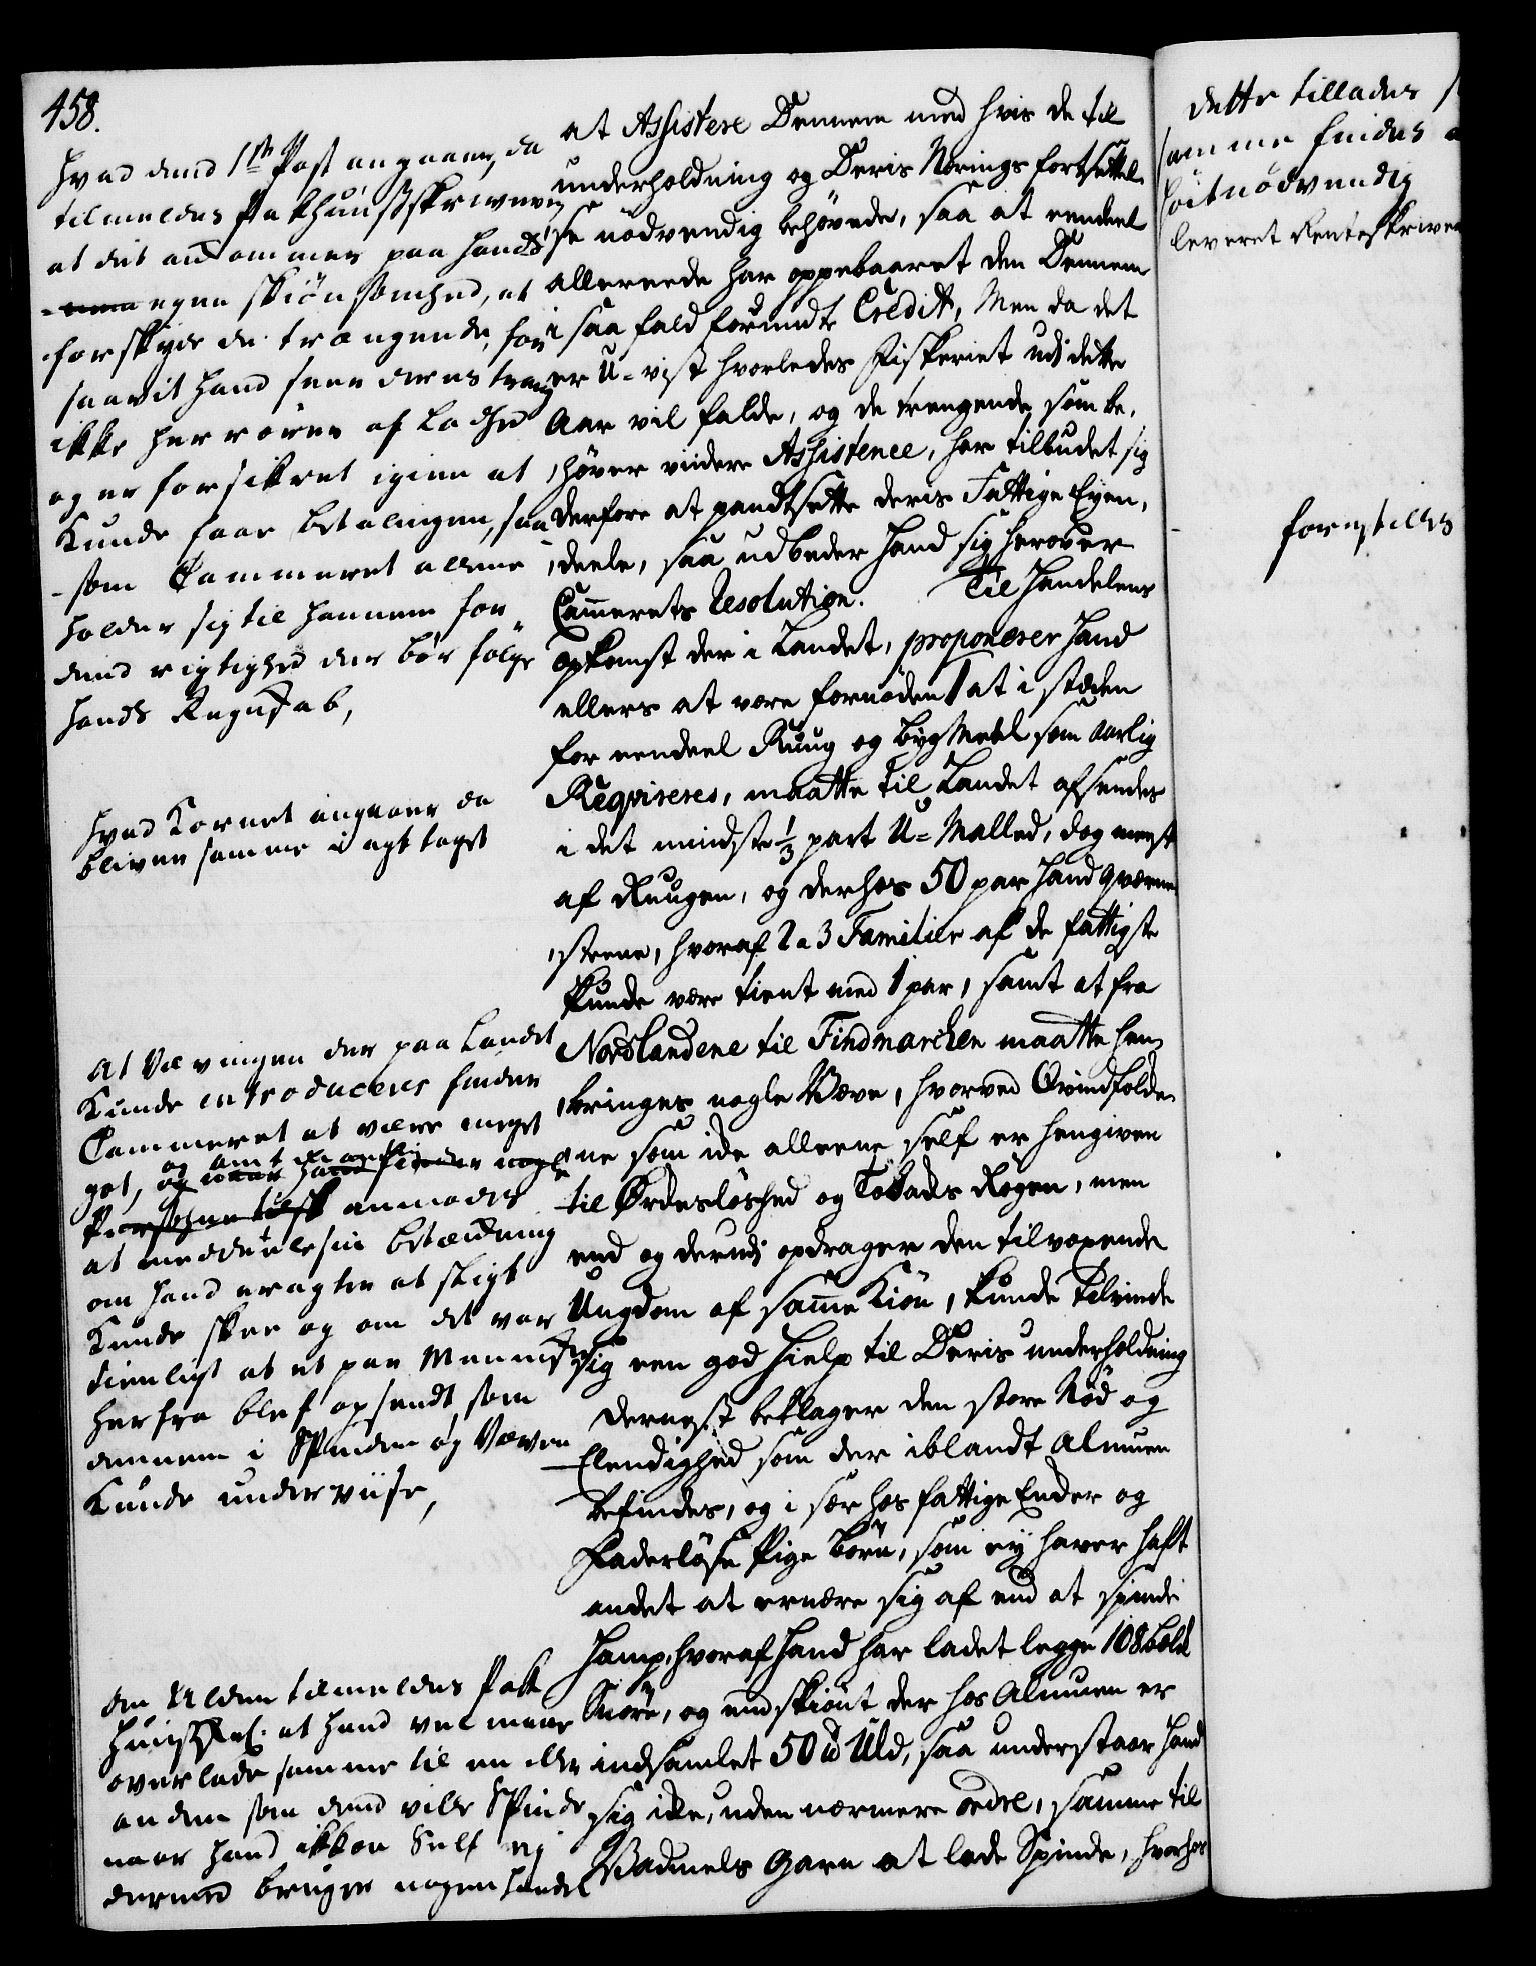 458.
hvad dend 1ste Post angaaer, da
tilmeldes Pakhuusskriveren
at det ankommer paa hands
egen skiönsomhed, at
forskyde de trængende, for
saavit hand seer deres trang
ikke herrörer af Ladhed
og er forsikret igien at
Kunde faae betalingen, saa
som Cammeret allene
holder sig til hannem for
dend rigtighed der bör fölge
hands Regnskab,
hvad Kornet angaaer da
bliver samme i agt taget
At Væwingen der paa Landet
Kunde introduceres finder
Cammeret at være meget
got, og
anmodes
at meddeele sin betænkning
om hand eragter at sligt
Kunde skee og om det var
tienligt at et par Mennisker
herfra blef opsendt, som
dennem i Spinden og Væven
Kunde underviise,
om Ulden tilmeldes Pak
huusskr: at hand vel maae
overlade samme til en eller
anden som dend vilde Spinde
naar hand ikkon Self ej
dermed bruger nogen handel
at Assistere Dennem med hvis de til
underholdning og Deris Nærings fortsettel-
se nödvendig behövede, saa at eendeel
allereede har oppebaaret den Dennem
i saa fald forundte Credit, Men da det
er U-vist hvorledes Fiskeriet udi dette
Aar vil falde, og de trengende som be-
höver viidere Assistence, har tilbudet sig
derfore at pandtsette deris Fattige Eyen-
deele, saa udbeder hand sig herover
Cammerets Resolution. Til Handelens
opkomst der i Landet, proponerer hand
ellers at være fornöden at i stæden
for eendeel Ruug og bygMeel som aarlig
Reqvireres, maatte til Landet afsendes
i det mindste 1/3 part U-Malled, dog meest
af Ruugen, og derhos 50 par Hand qværne
steene, hvoraf 2 a 3 Familier af de fattigste
kunde være tient med 1 par, samt at fra
Nordlandene til Findmarchen maatte hen-
bringes nogle Væve, hvorved Qvindfolde-
ne som ikke alleene self er hengiven
til Ørdeslöshed og Tobaks Rögen, men
end og derudi opdrager den tilvoxende
Ungdom af samme Kiön, kunde tilvinde
sig een god Hielp til Deris underholdning
Dernest beklager den store Nöd og
Elendighed som der iblandt Almuen
befindes, og i sær hos fattige Enker og
Faderlöse Pige börn, som ey haver haft
andet at ernære sig af end at spinde
Hamp, hvoraf Hand har ladet legge 108
Snöre, og endskiönt der hos Almuen er
indsamlet 50 ℔ Uld, saa understaar Hand
sig ikke, uden nærmere ordre, samme til
Vadmels Garn at lade Spinde, hvorhos
dette tillades
samme findes
höitnödvendig
leveret Renteskriver
forestilles